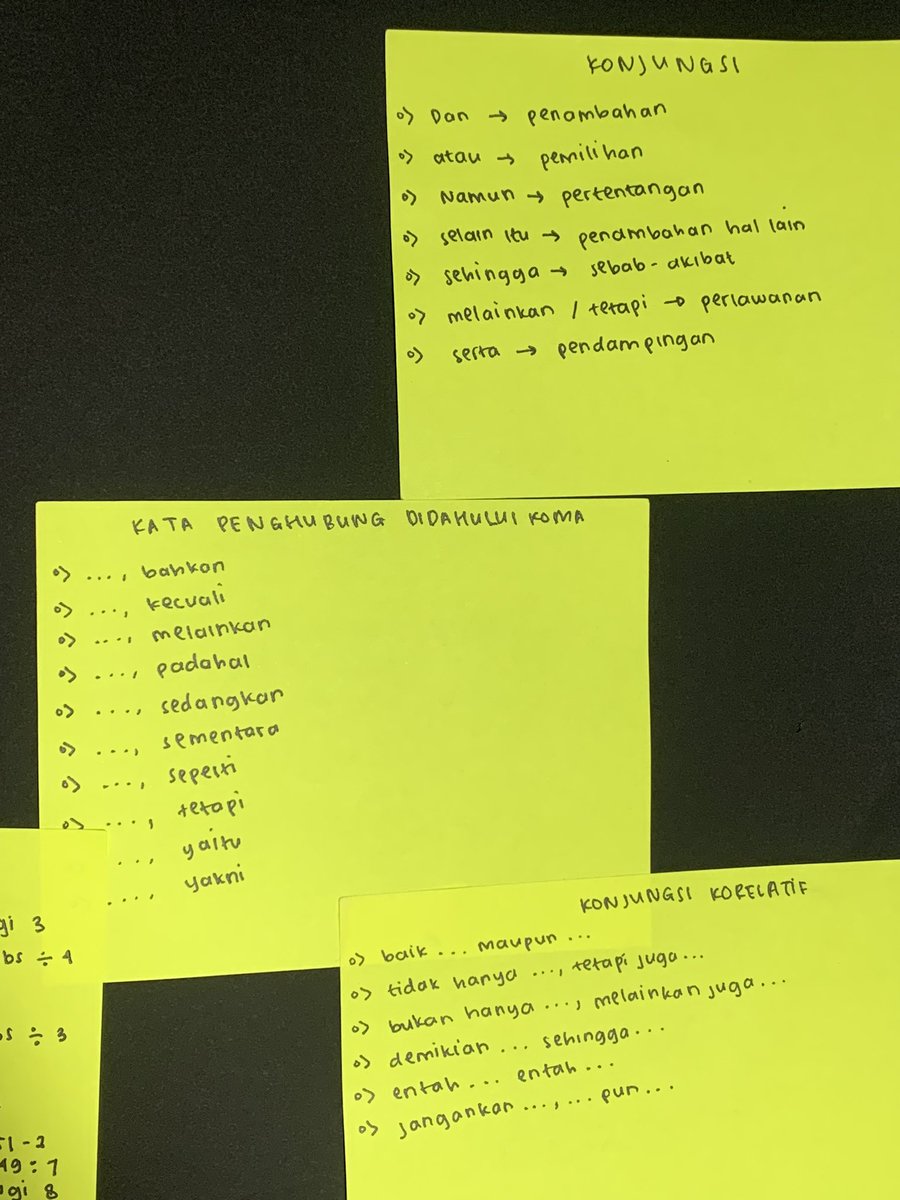 KONJUNGSI
Dan → penambahan
atau → pemilihan
Namun → pertentangan
selain itu → penambahan hal lain
sehingga → sebab-akibat
melainkan / tetapi → perlawanan
serta → pendampingan
KATA PENGHUBUNG DIDAHULUI KOMA
..., bahkan
..., kecuali
..., melainkan
..., padahal
..., sedangkan
..., sementara
..., seperti
..., tetapi
..., yaitu
..., yakni
gi 3
bs ÷ 4
bs ÷ 3
51-2
49:7
gi 8
KONJUNGSI KORELATIF
baik ... maupun ...
tidak hanya ..., tetapi juga ...
bukan hanya ..., melainkan juga ...
demikian ... sehingga ...
entah ... entah ...
jangankan ..., ... pun ...